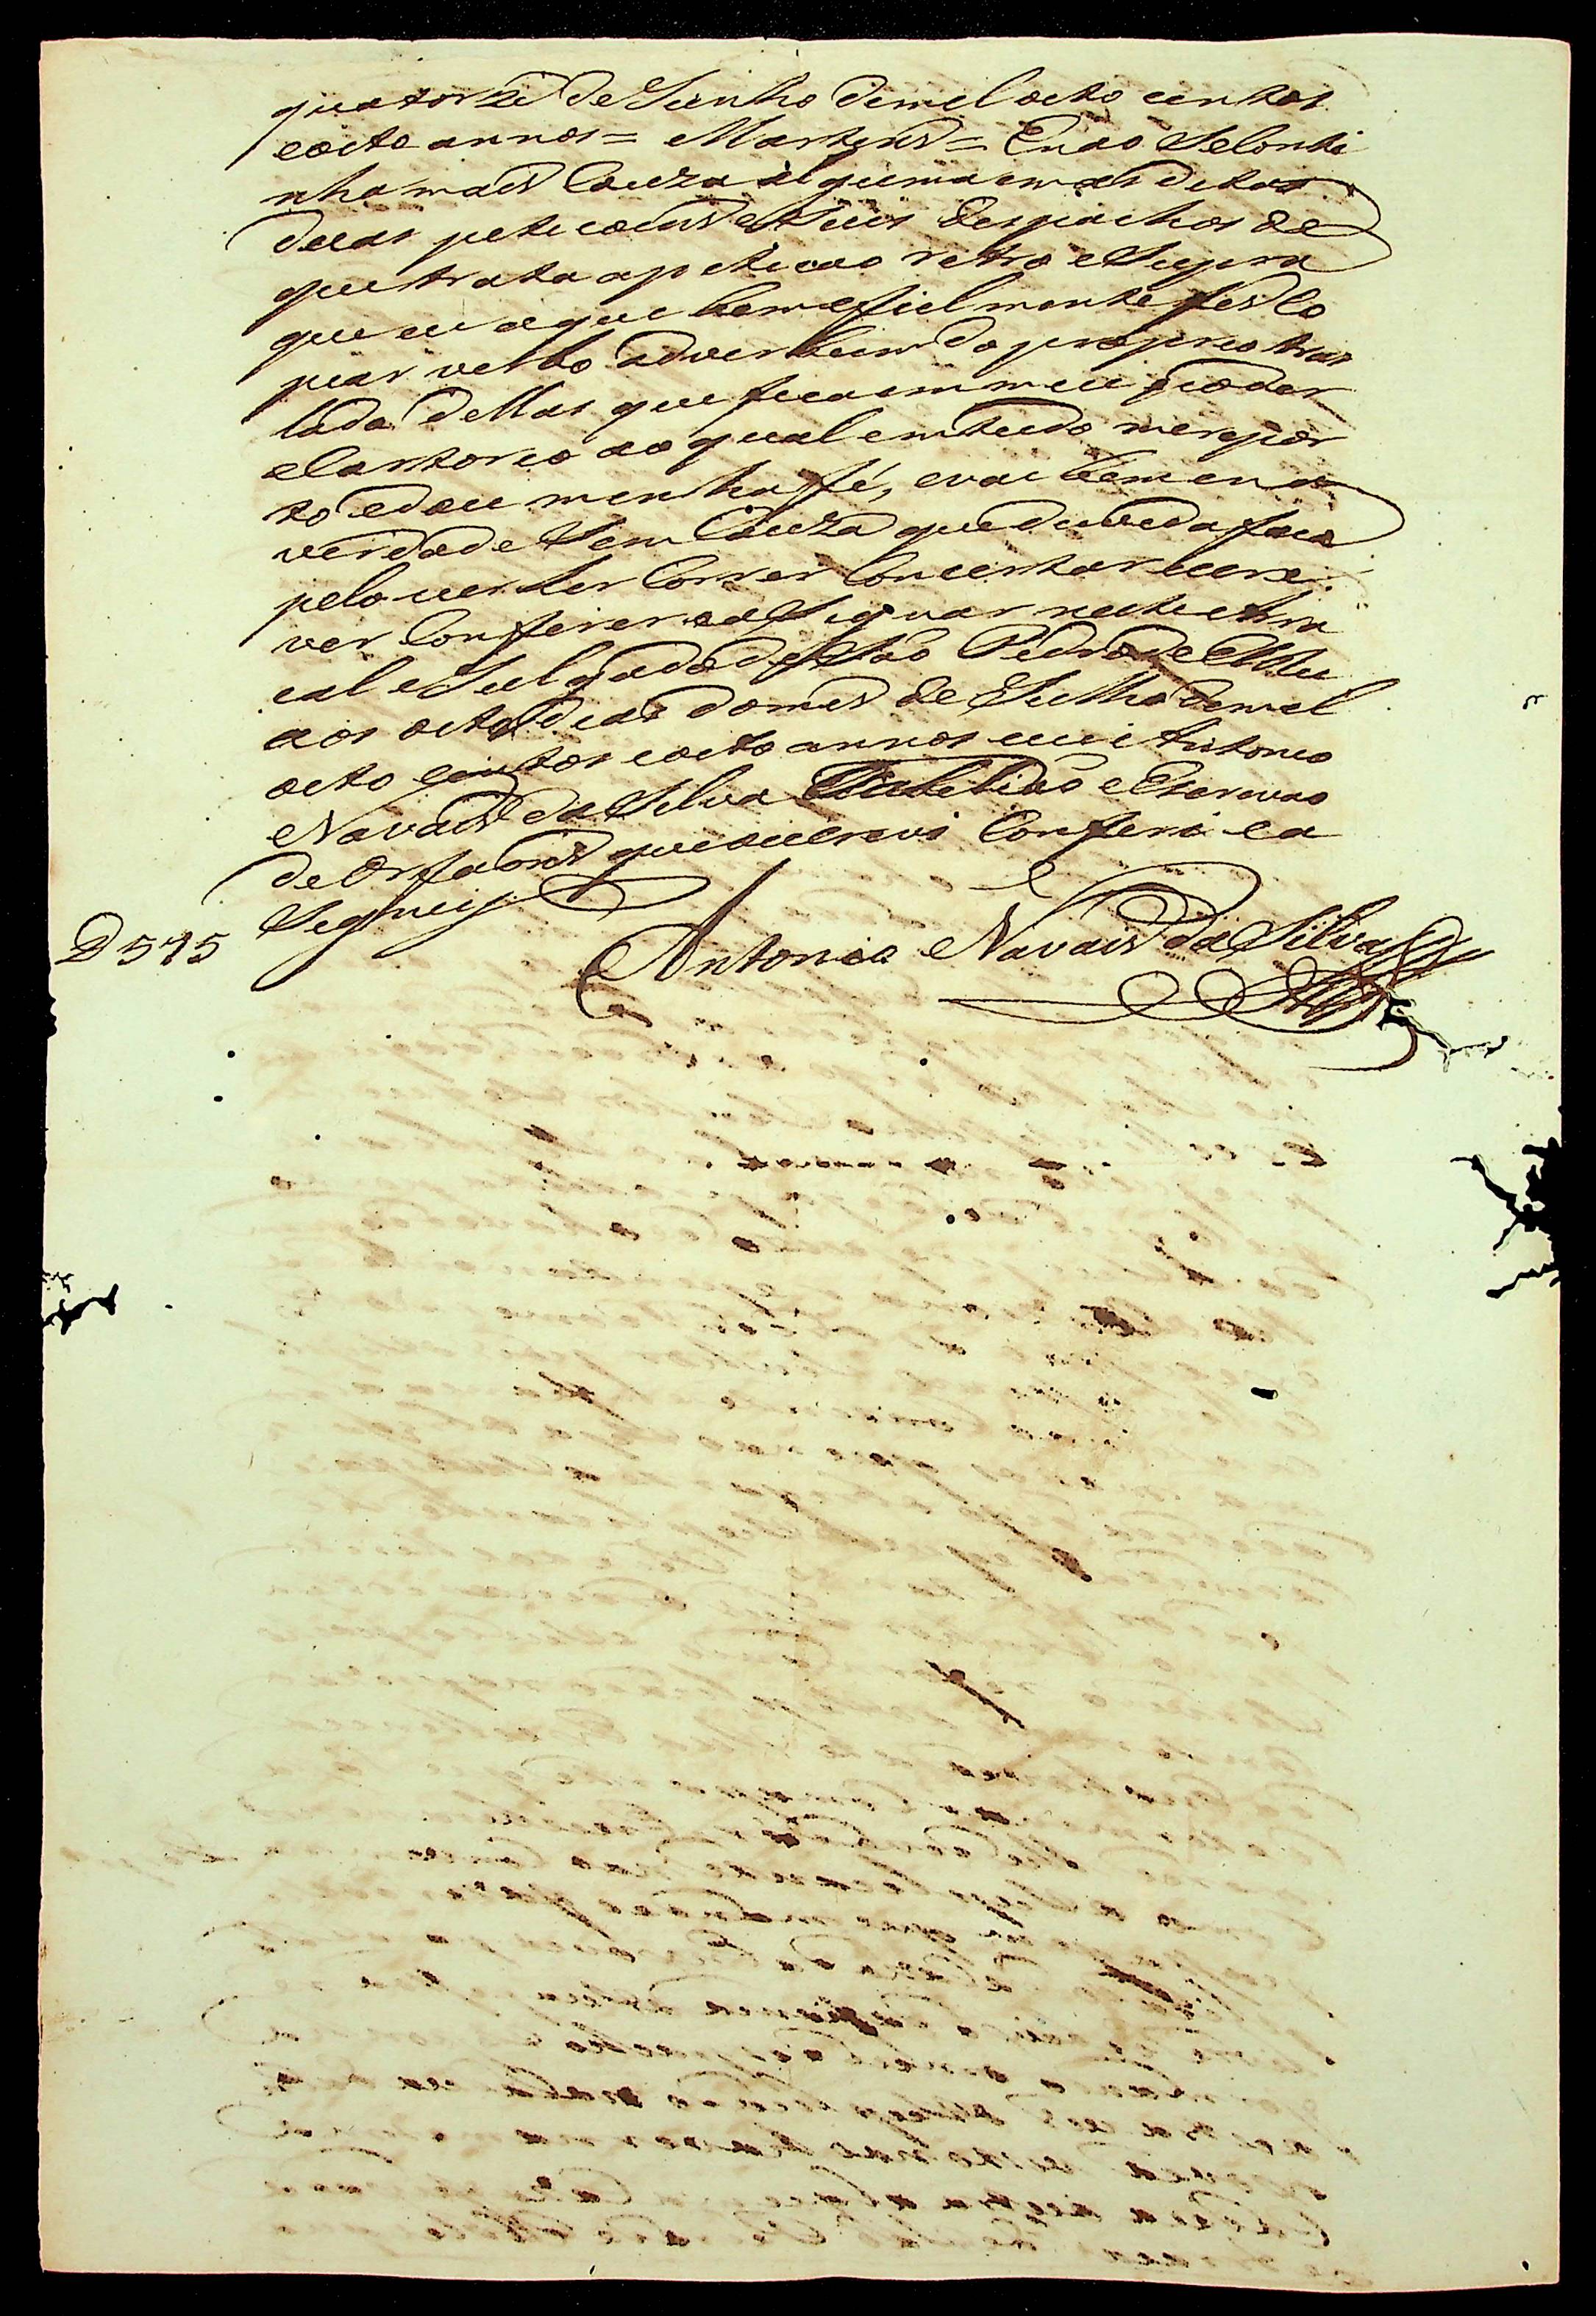 quatorze de Junho de mil oito centos
e oito annos = Martins = E nao Se Conti
nha mais Couza alguma em as ditas
duas peticoens e Seus despachos de
que trata a peticao retro e Supra
que eu aqui bem e fielmente fis co
piar verbo adverbum do proprio tras
lado dellas que fica em meu poder
e Cartorio ao qual em tudo me repor
to e dou minha fé, e vai bem e na
verdade Sem Couza que duvida faca
pelo ver ler Correr Concertar escre
ver Conferir e asignar neste Arra
ial e Julgado de São Pedro de
aos oito dias do mes de Julho de mil
oito centos e oito annos eu Antonio
Navais da Silva Tabeliao e Escrivao
de Orfaons que escrevi Conferi e a
Signei
D 545
Antonio Navais da Silva